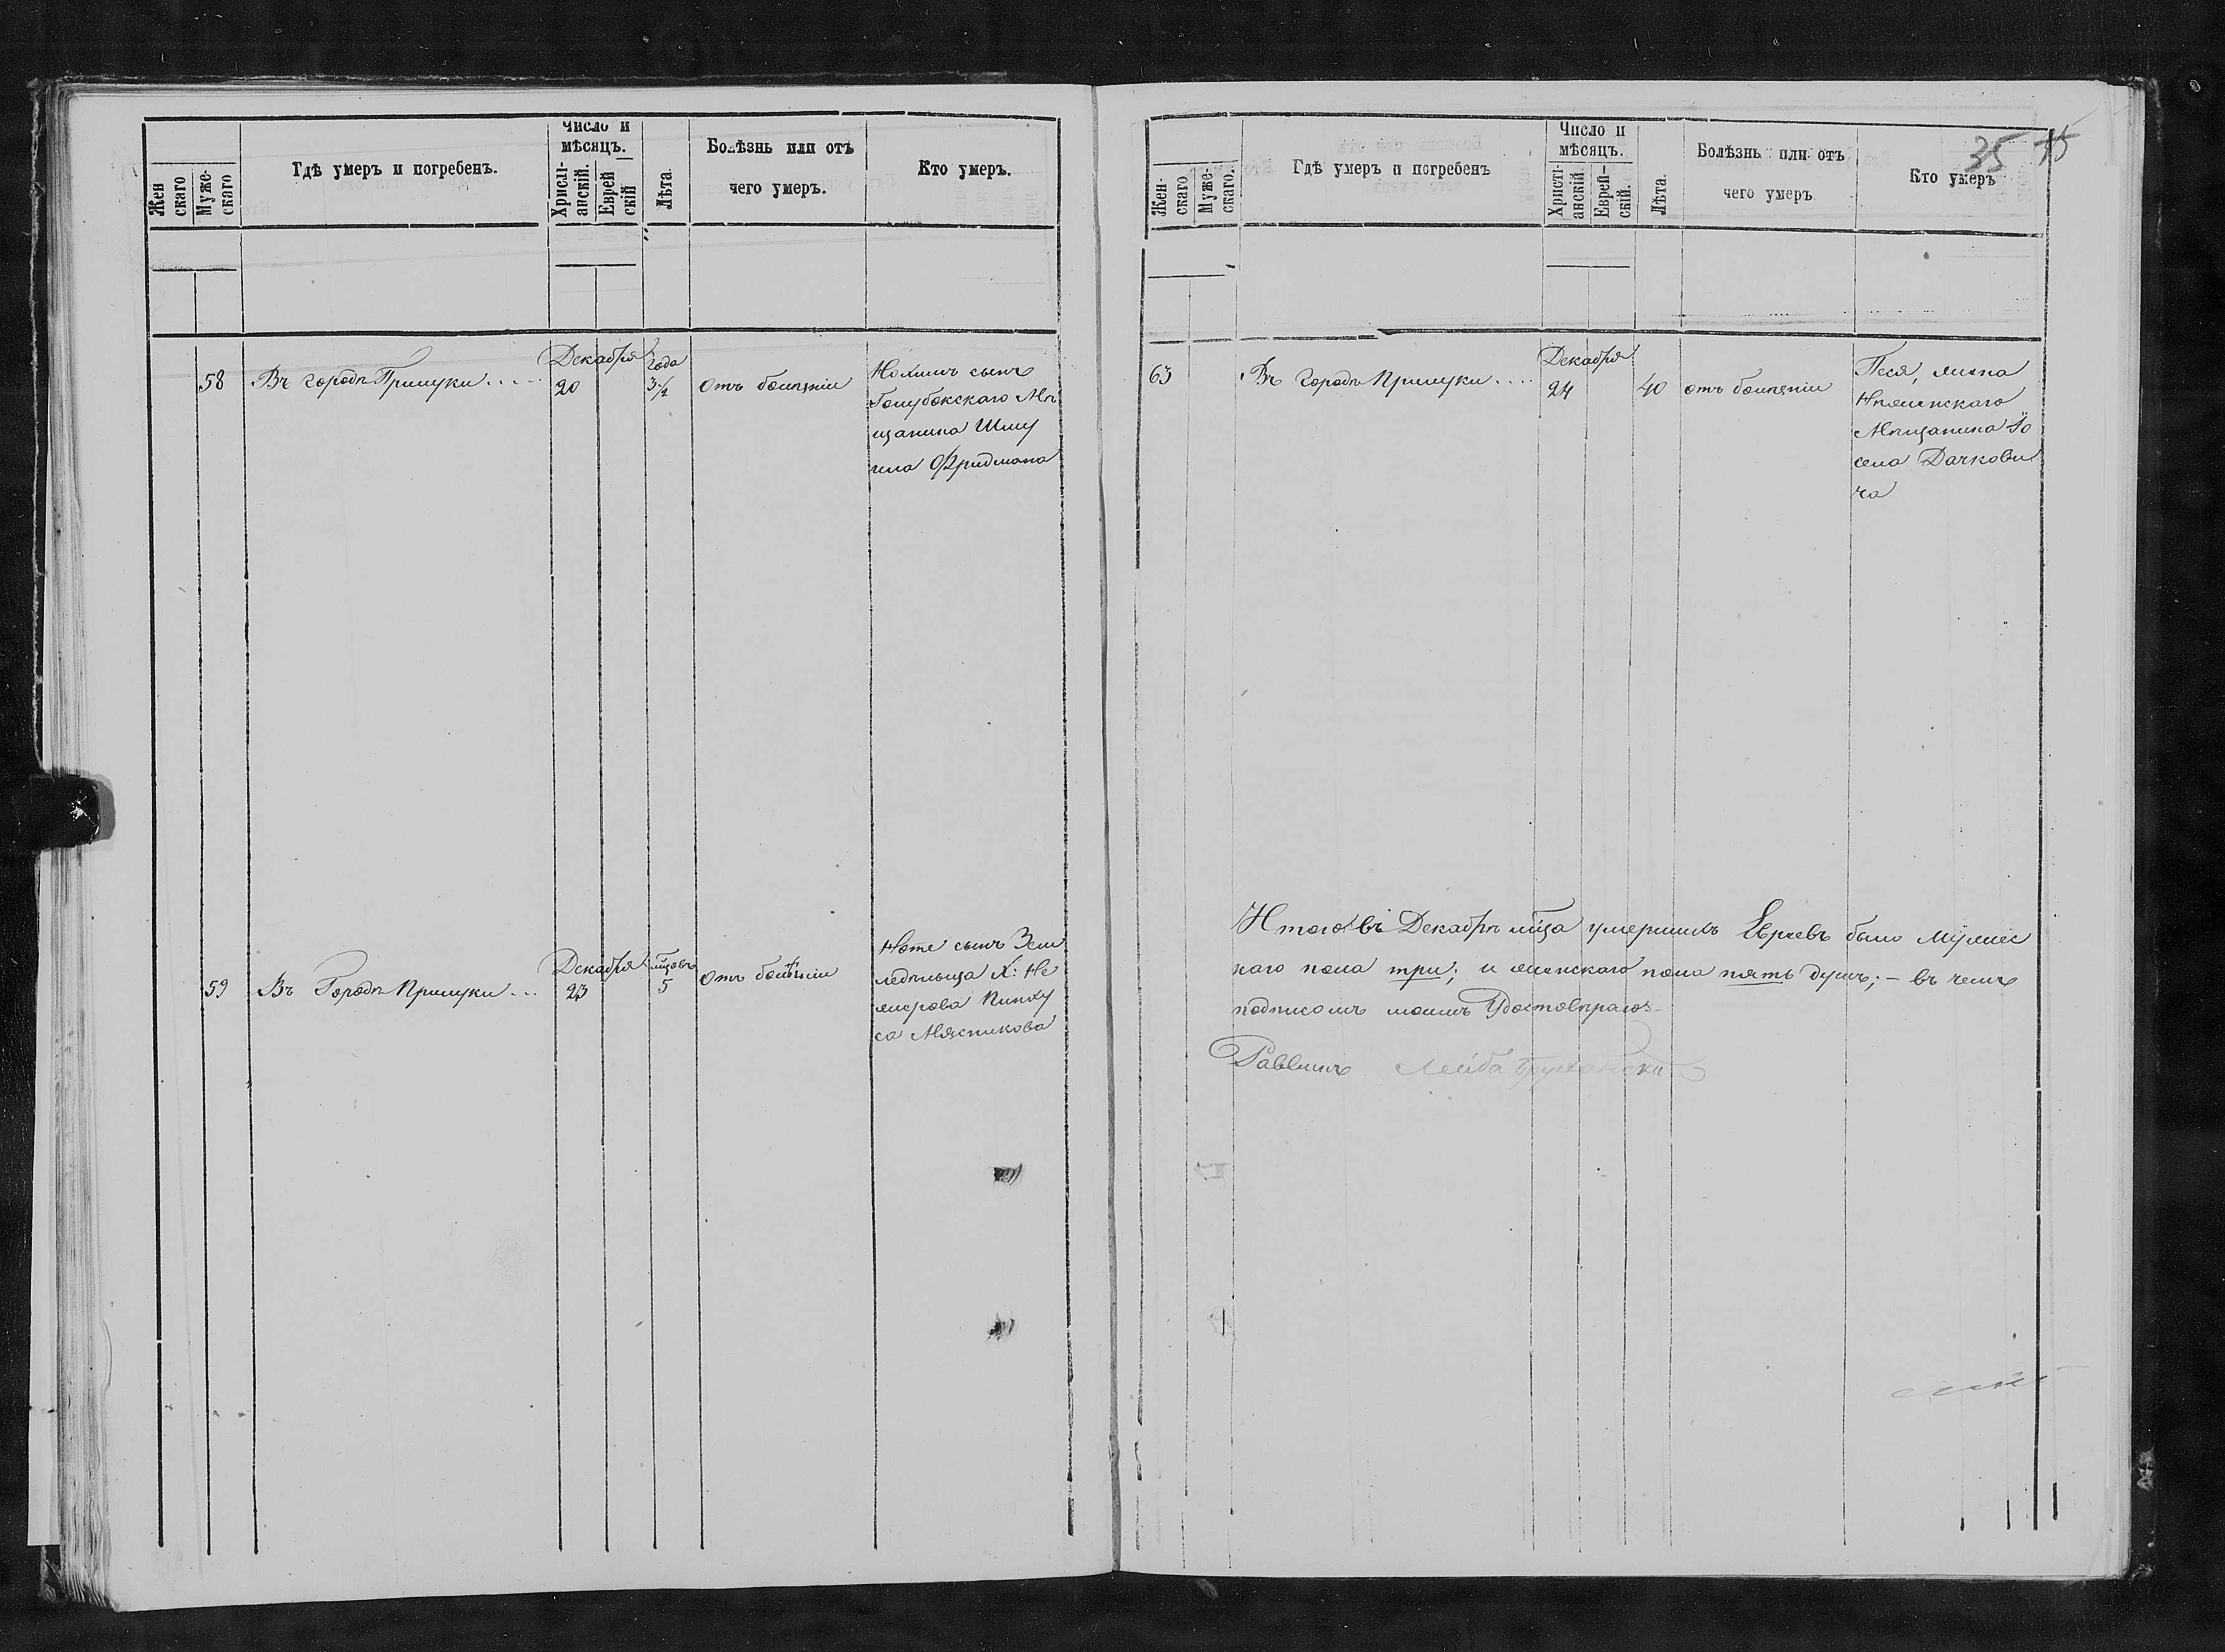 Жен
скаго
Муже-
скаго
Гдѣ умеръ и погребенъ.
Число и
мѣсяцъ.
Христі-
анскій.
Еврей
скій
Лѣта.
Болѣзнь или отъ
чего умеръ.
Кто умеръ.
58
Въ городѣ Прилуки....
Декабря
20
года
3½
отъ болѣзни
Нохимъ сынъ
Голубокскаго Мѣ
щанина Шму
ила Фридмана
59
Въ Городѣ Прилуки...
Декабря
23
мѣсяцовъ
5
Отъ болѣзни
Ноте сынъ Зем
ледѣльца К: Не
мерова Пинху
са Мясникова
35 15
Жен-
скаго
Муже-
скаго.
Гдѣ умеръ и погребенъ
Число и
мѣсяцъ.
Христі-
анскій.
Еврей-
скій.
Лѣта.
Болѣзнь или отъ
чего умеръ
Кто умеръ
63
Въ городѣ Прилуки....
Декабря
24
40
отъ болѣзни
Песя, жена
Нѣжинскаго
Мѣщанина Іо
села Дачкови
ча
Итого въ Декабрѣ м̃ца умершихъ Евреевъ было Мужес
каго пола три; и женскаго пола пять душъ; - въ чемъ
подписомъ моимъ Удостовѣраю
Раввинъ Лейба